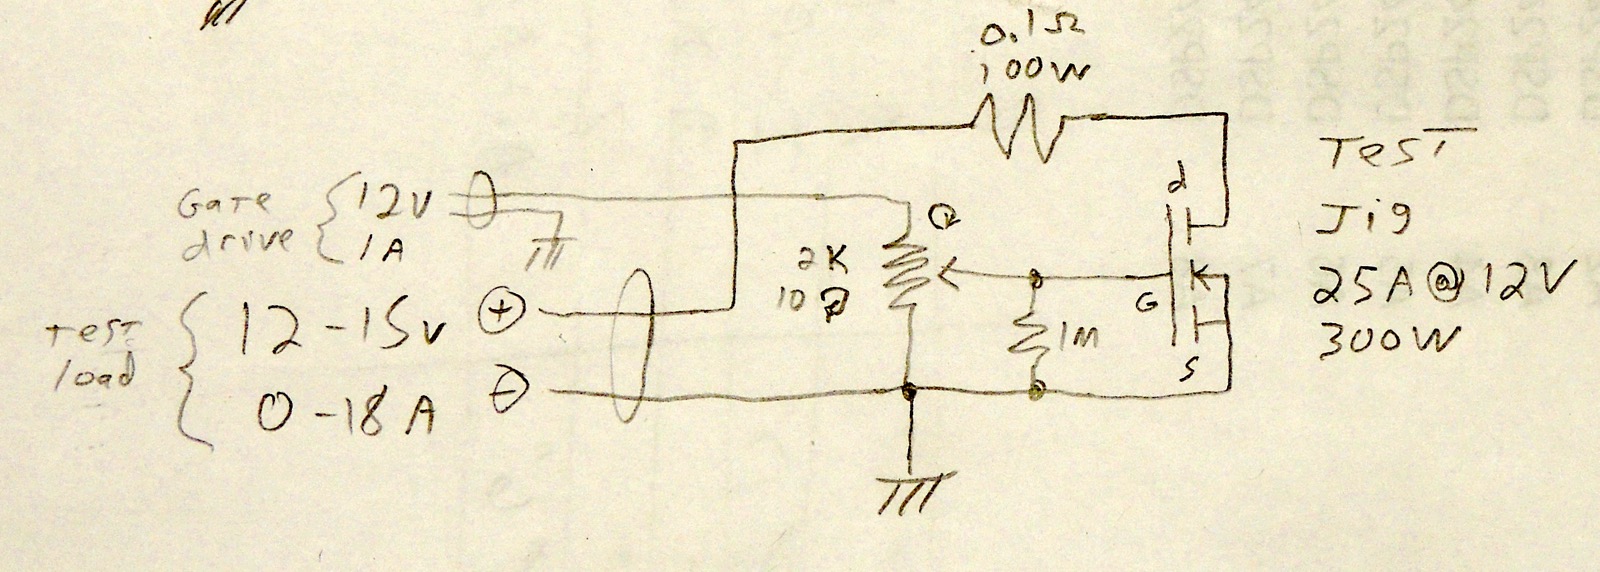 0.1Ω
100W
Gate
drive
12V
1A
Test
load
12-15v
0-18A
+
-
2K
10
1M
d
G
s
Test
Jig
25A@12V
300W